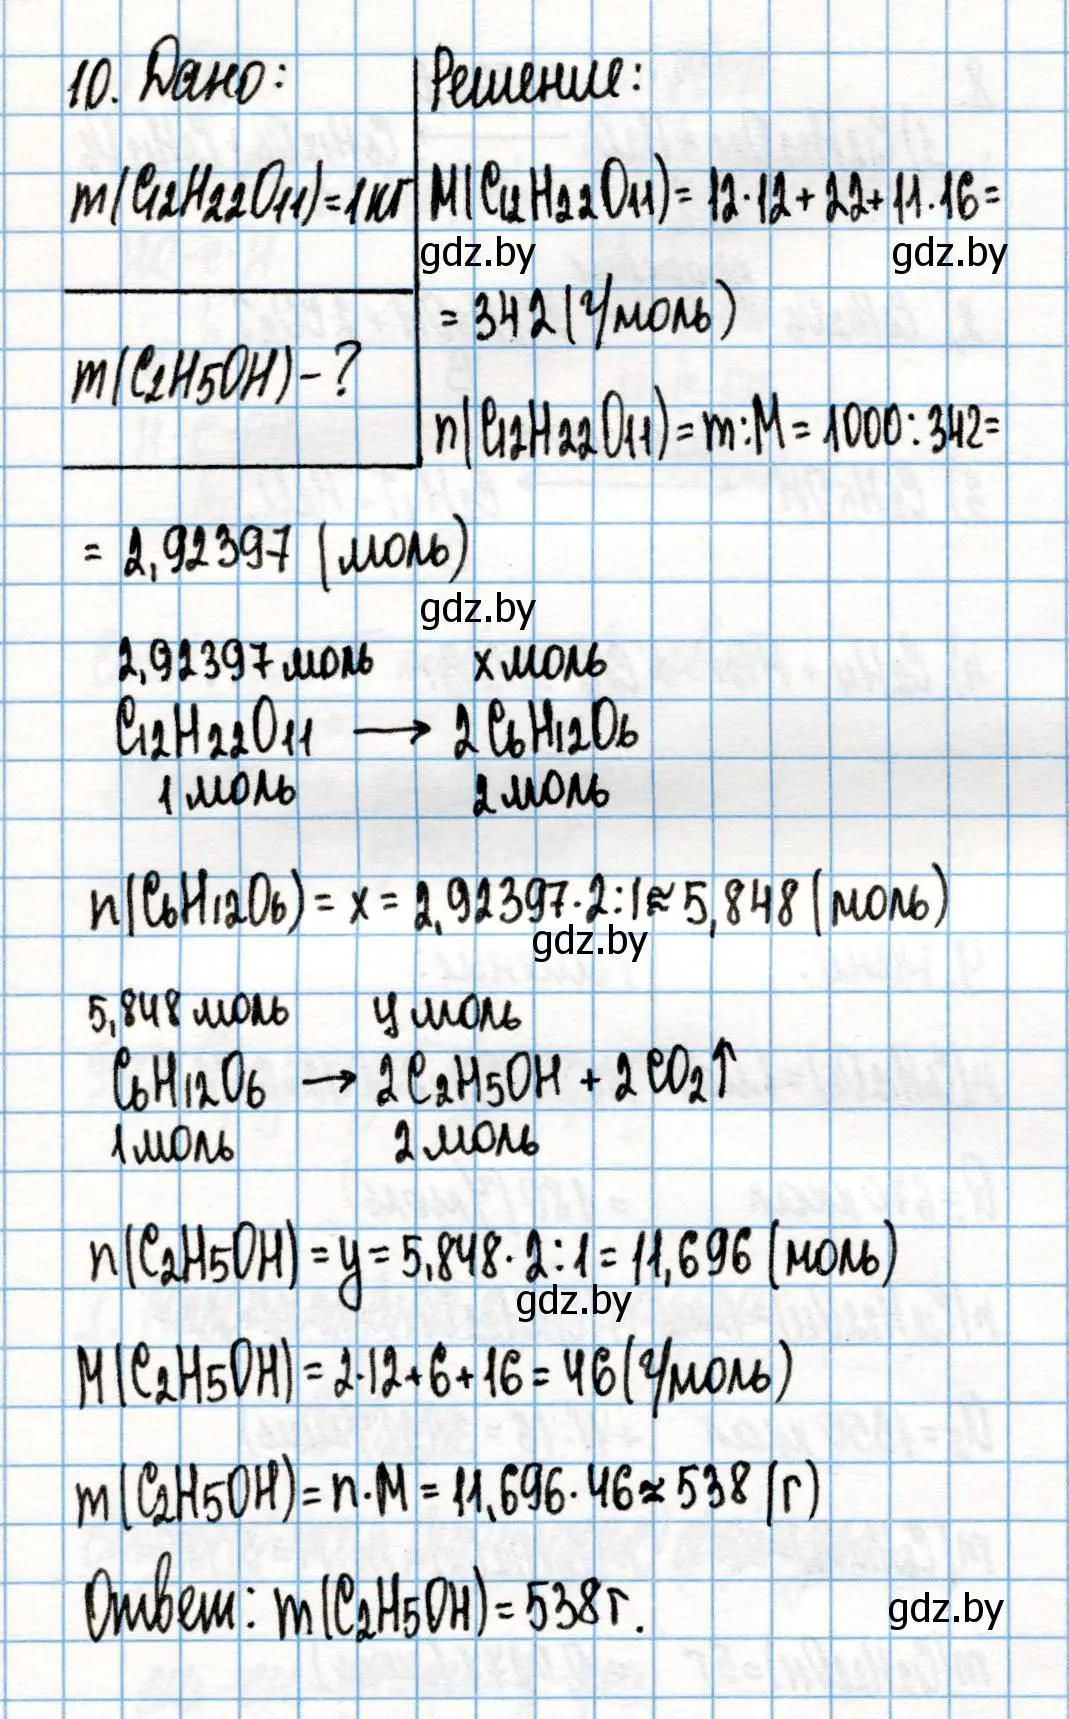 10. Дано:
Решение:
m(C12H22O11)=1кг
M(C12H22O11)= 12·12+22+11·16=
gdz.by
gdz.by
= 342 (г/моль)
m(C2H5OH)-?
n(C12H22O11)=m:M=1000:342=
= 2,92397 (моль)
gdz.by
2,92397 моль x моль
C12H22O11 → 2C6H12O6
1 моль 2 моль
n(C6H12O6)= x = 2,92397·2:1≈5,848 (моль)
gdz.by
5,848 моль y моль
C6H12O6 → 2C2H5OH + 2CO2↑
1 моль 2 моль
n(C2H5OH)=y=5,848·2:1=11,696 (моль)
gdz.by
M(C2H5OH)=2·12+6+16=46(г/моль)
m(C2H5OH)=n·M=11,696·46≈538 (г)
Ответ: m(C2H5OH)=538г.
gdz.by